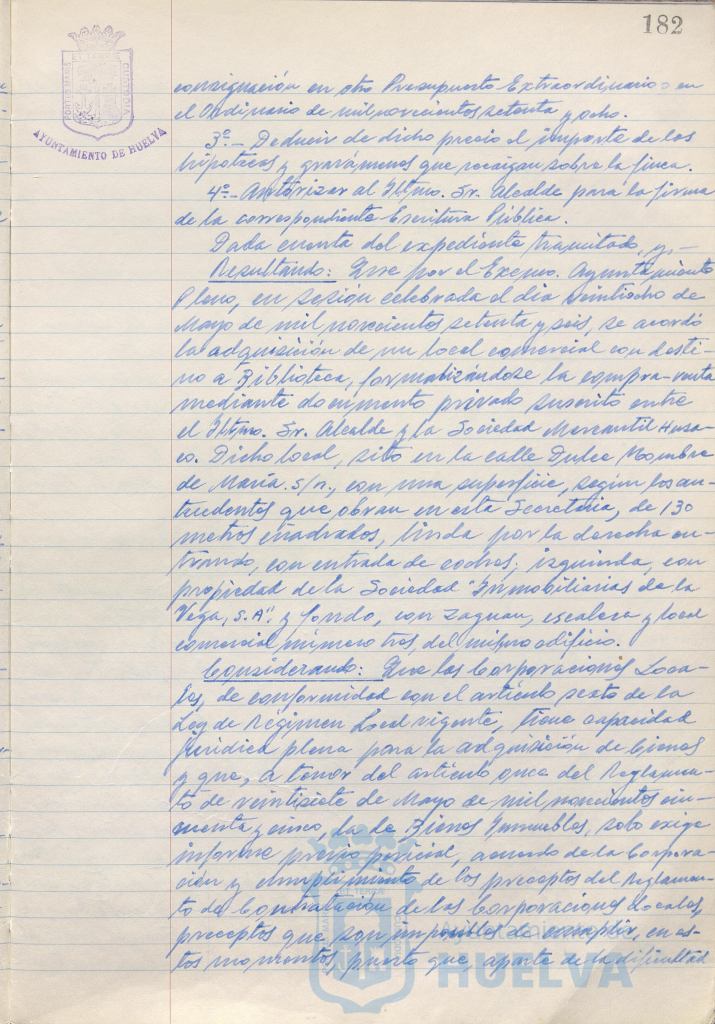 182
PORTUS MARIS ET TERRAE CUSTODIA
AYUNTAMIENTO DE HUELVA
consignación en otro Presupuesto Extraordinario o en
el Ordinario de mil novecientos setenta y ocho.
3º.- Deducir de dicho precio el importe de las
hipotecas y gravámenes que recaigan sobre la finca.
4º.- Autorizar al Iltmo. Sr. Alcalde para la firma
de la correspondiente Escritura Pública.
Dada cuenta del expediente tramitado, y,-
Resultando: Que por el Excmo. Ayuntamiento
Pleno, en sesión celebrada el día veintiocho de
Mayo de mil novecientos setenta y seis, se acordó
la adquisición de un local comercial con desti-
no a Biblioteca, formalizándose la compra-venta
mediante documento privado suscrito entre
el Iltmo. Sr. Alcalde y la Sociedad Mercantil Husa-
co. Dicho local, sito en la calle Dulce Nombre
de María s/n, con una superficie, según los an-
tecedentes que obran en esta Secretaría, de 130
metros cuadrados, linda por la derecha en-
trando, con entrada de coches; izquierda, con
propiedad de la Sociedad "Inmobiliarias de la
Vega, S.A". y fondo, con zaguan, escalera y local
comercial número tres, del mismo edificio.
Considerando: Que las Corporaciones Loca-
les, de conformidad con el artículo sexto de la
Ley de Régimen Local vigente, tiene capacidad
jurídica plena para la adquisición de bienes
y que, a tenor del artículo once del Reglamen-
to de veintisiete de Mayo de mil novecientos cin-
cuenta y cinco, la de Bienes Inmuebles, solo exige
informe previo pericial, acuerdo de la Corpora-
ción y cumplimiento de los preceptos del Reglamen-
to de Contratación de las Corporaciones Locales,
preceptos que son imposibles de cumplir, en es-
tos momentos, puesto que, aparte de la dificultad
Ayuntamiento
HUELVA